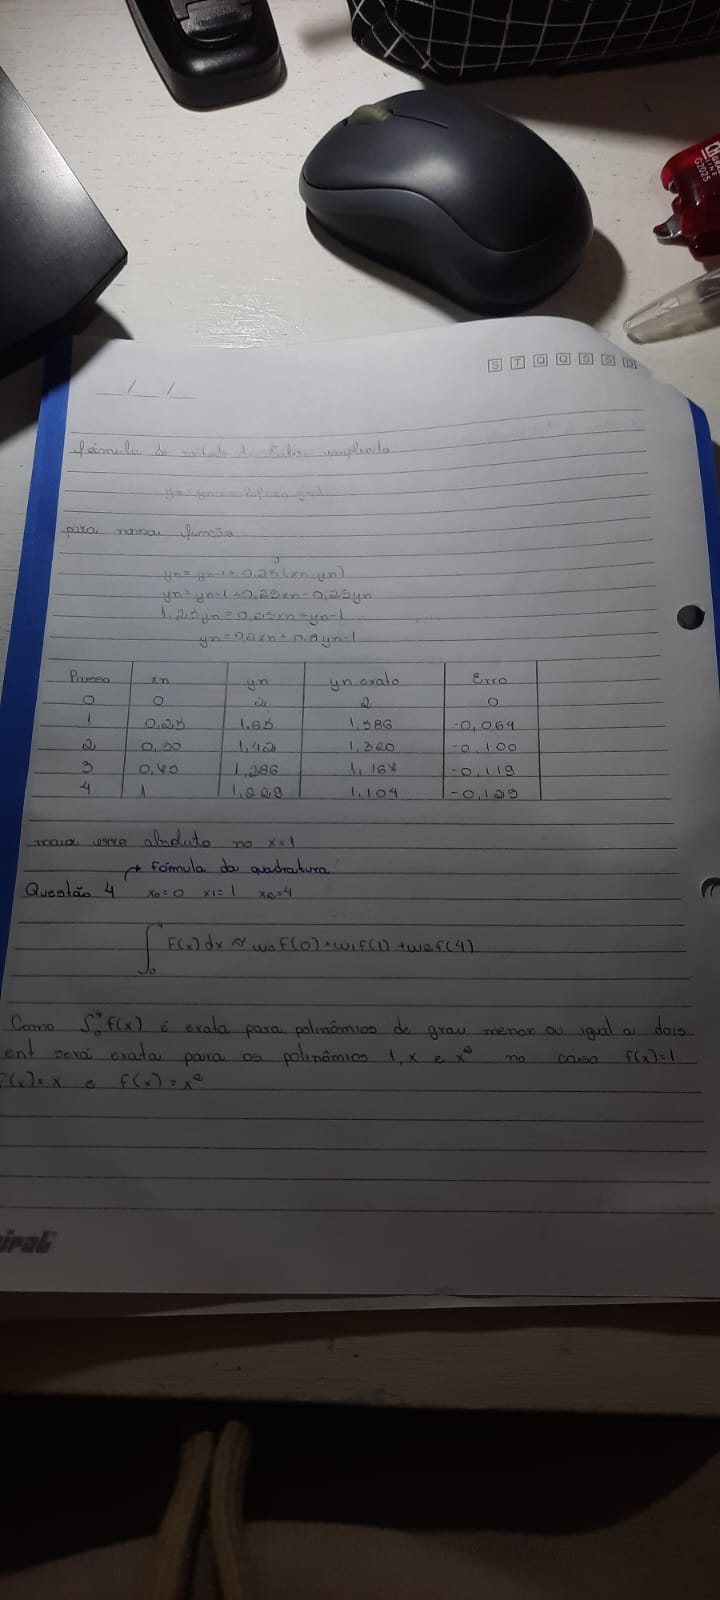 S T Q Q S S D
__/__/__
Fórmula do método de Euler implícito
para nossa função
yn= yn-1+ 0,25(xn-yn)
yn=yn-1+0,25xn-0,25yn
1,25yn=0,25xn+yn-1
yn=0,2xn+0,8yn-1
Passo xn yn yn exato Erro
0 0 2 2 0
1 0,25 1,65 1,586 -0,064
2 0,50 1,42 1,320 -0,100
3 0,45 1,286 1,167 -0,119
4 1 1,229 1,104 -0,129
maior erro absoluto no x=1
→ Fórmula da quadratura
Questão 4 x0=0 x1=1 x2=4
∫₀⁴ f(x)dx ≈ w0f(0)+w1f(1)+w2f(4)
Como ∫₀⁴ f(x) é exata para polinômios de grau menor ou igual a dois
ent será exata para os polinômios 1, x e x² no caso f(x)=1
f(x)=x e f(x)=x²
CH GRA
LINE
G2025